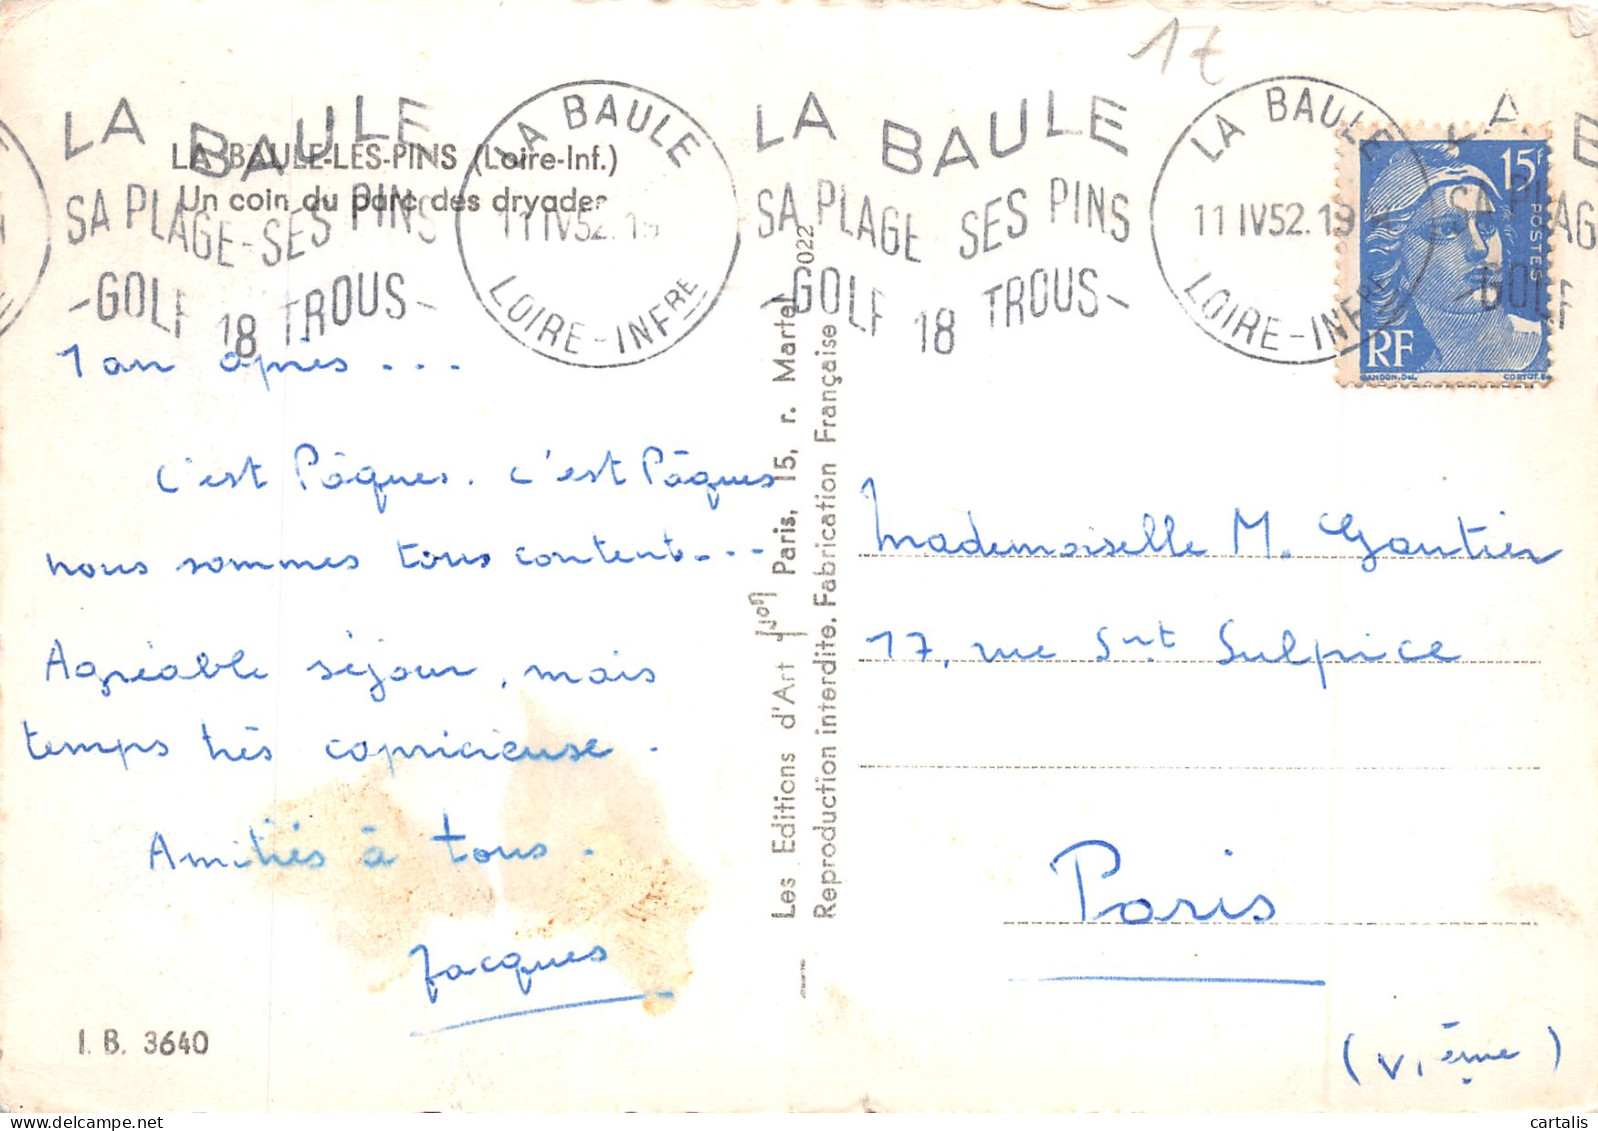 1€
LA BAULE
SA PLAGE-SES PINS
-GOLF 18 TROUS-
LA BAULE
11 IV 52.19
LOIRE-INFRE
LA BAULE
SA PLAGE SES PINS
-GOLF 18 TROUS-
LA BAULE
11 IV 52.19
LOIRE-INFRE
15F
POSTES
RF
GANDON.Del.
LA BAULE-LES-PINS (Loire-Inf.)
Un coin du parc des dryades
1 an après ...
C'est Pâques. C'est Pâques
nous sommes tous content...
Agréable séjour, mais
temps très capricieuse.
Amitiés à tous.
Jacques
I. B. 3640
Les Editions d'Art Yvon Paris, 15, r. Martel
Reproduction interdite. Fabrication Française
Mademoiselle M. Gautier
17, rue Snt Sulpice
Paris
(VIème)
cartalis